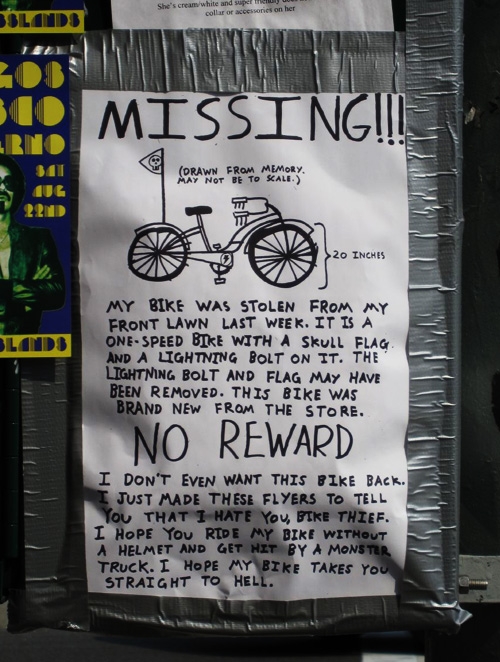 She's cream/white and super friendly does
collar or accessories on her
SSLANDS
GOS
SCO
ERNO
SAT
AUG
22ND
SLANDS
MISSING!!!
(DRAWN FROM MEMORY.
MAY NOT BE TO SCALE.)
20 INCHES
MY BIKE WAS STOLEN FROM MY
FRONT LAWN LAST WEEK. IT IS A
ONE-SPEED BIKE WITH A SKULL FLAG
AND A LIGHTNING BOLT ON IT. THE
LIGHTNING BOLT AND FLAG MAY HAVE
BEEN REMOVED. THIS BIKE WAS
BRAND NEW FROM THE STORE.
NO REWARD
I DON'T EVEN WANT THIS BIKE BACK.
I JUST MADE THESE FLYERS TO TELL
YOU THAT I HATE YOU, BIKE THIEF.
I HOPE YOU RIDE MY BIKE WITHOUT
A HELMET AND GET HIT BY A MONSTER
TRUCK. I HOPE MY BIKE TAKES YOU
STRAIGHT TO HELL.